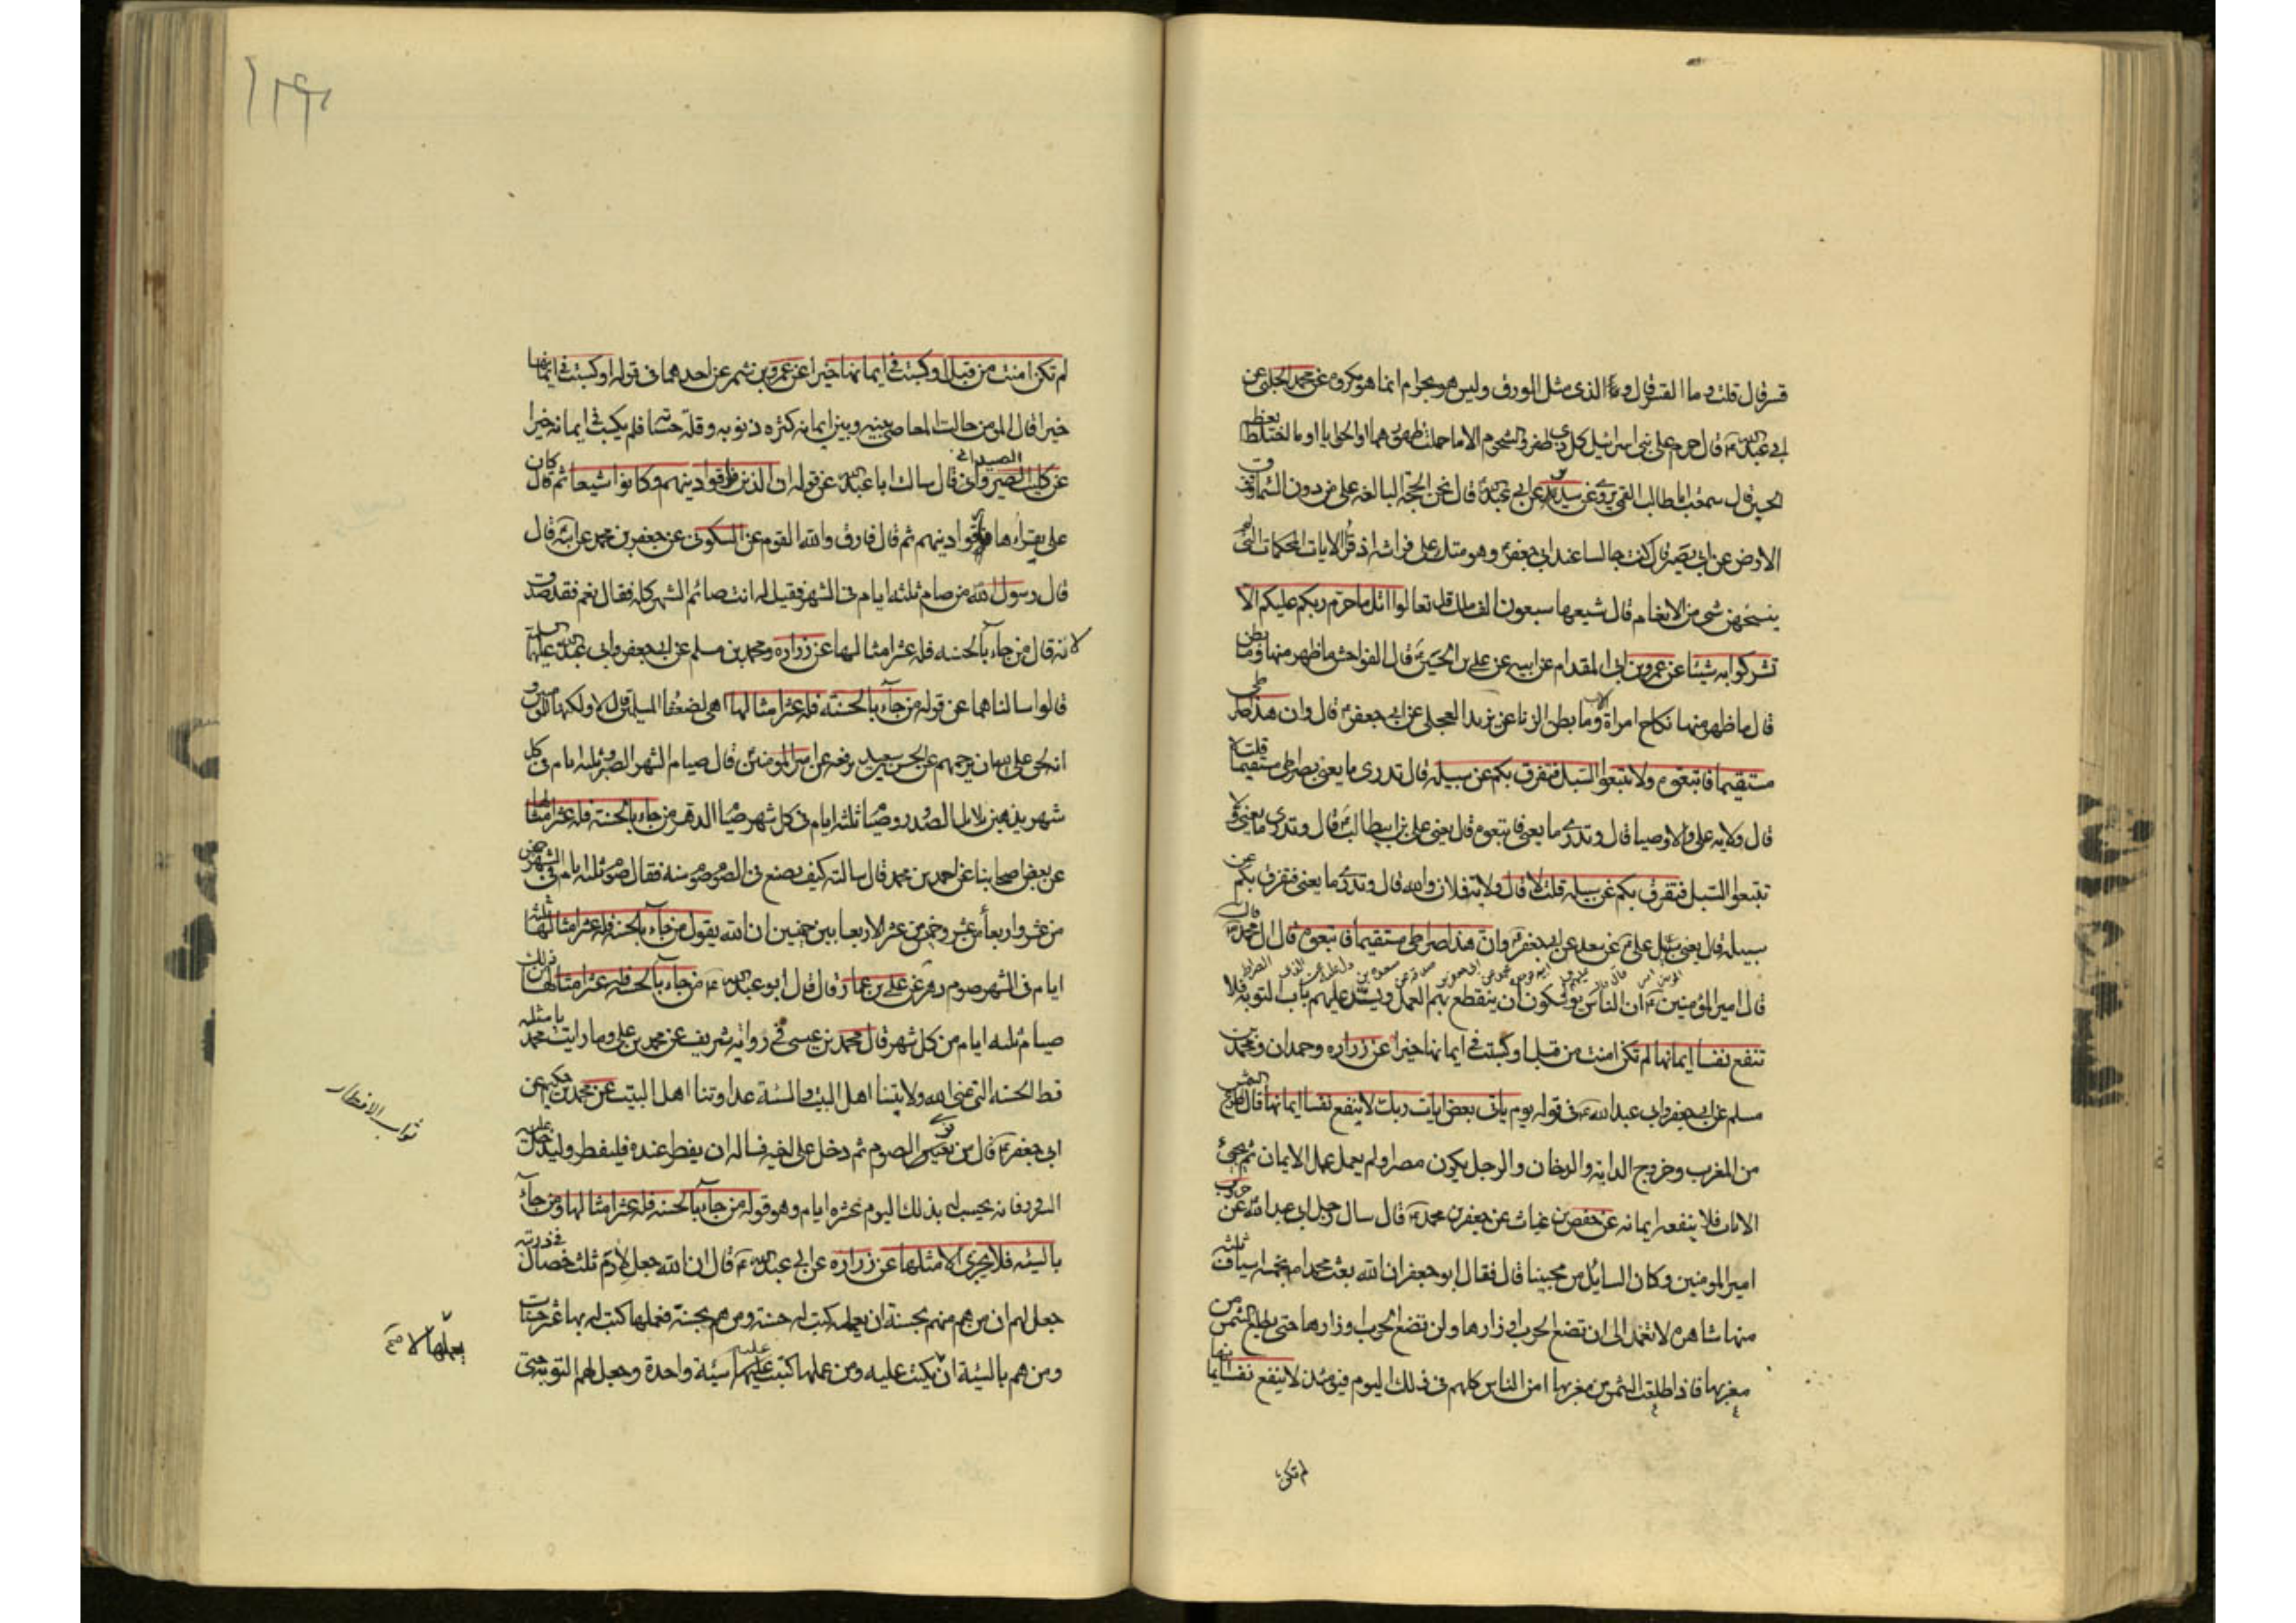 قشر قال قلت وما القشر قال وما الذى مثل الورق وليس هو بحرام انما هو مكروه عن محمد الحلبى عن
ابى عبد الله ع قال حرم على بنى اسرائيل كل ذى ظفر والشحوم الا ما حملت ظهورهما او الحوايا او ما اختلط بعظم
الحسين قال سمعت ابا طالب القمى يروى عن سدير عن ابى عبد الله قال نحن الحجة البالغه على من دون السماء وفوق
الارض عن ابى بصير قال كنت جالسا عند ابى جعفر ع وهو متك على فراشه اذ قرأ الايات المحكمات التى لم
ينسخهن شى من الانعام قال شيعها سبعون الف ملك قل تعالوا اتل ما حرم ربكم عليكم الا
تشركوا به شيئا عن عمرو بن ابى المقدام عن ابيه عن على بن الحسين ع قال الفواحش ما ظهر منها وما بطن
قال ما ظهر منها نكاح امراة الاب وما بطن الزنا عن بريد العجلى عن ابى جعفر ع قال وان هذا صراطى
مستقيما فاتبعوه ولا تتبعوا السبل فتفرق بكم عن سبيله قال تدرى ما يعنى بصراطى مستقيما قلت لا
قال ولاية على والاوصيا قال وتدرى ما يعنى فاتبعوه قال يعنى على بن ابيطالب ع قال وتدرى ما يعنى ولا
تتبعوا السبل فتفرق بكم عن سبيله قلت لا قال ولاية فلان وفلان والله قال وتدرى ما يعنى فتفرق بكم عن
سبيله قال يعنى سبيل على ع عن سعد عن ابى جعفر ع وان هذا صراطى مستقيما فاتبعوه قال ال محمد ع
قال امير المؤمنين ع ان الناس يوشكون ان ينقطع بهم العمل ويسد عليهم باب التوبة فلا
تنفع نفسا ايمانها لم تكن امنت من قبل او كسبت فى ايمانها خيرا عن زراره وحمدان ومحمد بن
مسلم عن ابى جعفر وابى عبد الله ع فى قوله يوم ياتى بعض ايات ربك لا ينفع نفسا ايمانها قال طلوع الشمس
من المغرب وخروج الدابه والدخان والرجل يكون مصرا ولم يعمل عمل الايمان ثم تجئ
الايات فلا ينفعه ايمانه عن حفص بن غياث عن جعفر بن محمد ع قال سال رجل ابى عبد الله عن حروب
امير المومنين وكان السايل من محبينا قال فقال ابو جعفر ان الله بعث محمدا بخمسه اسياف ثلثه
منها شاهرة لا تغمد الى ان تضع الحرب اوزارها ولن تضع الحرب اوزارها حتى يطلع الشمس من
مغربها فاذا طلعت الشمس من مغربها امن الناس كلهم فى ذلك اليوم فيومئذ لا ينفع نفسا ايمانها
لم تكن
لم تكن امنت من قبل او كسبت فى ايمانها خيرا عن عمرو بن شمر عن احدهما فى قوله او كسبت فى ايمانها
خيرا قال المومن حالت المعاصى بينه وبين ايمانه كثرة ذنوبه وقلة حسناته فلم يكسب فى ايمانه خيرا
عن كليب الصيداوى قال سالت ابا عبد الله عن قوله ان الذين فارقوا دينهم وكانوا شيعا ثم قال كان
على يقراها فارقوا دينهم ثم قال فارق والله القوم عن السكونى عن جعفر بن محمد عن ابيه قال
قال رسول الله من صام ثلثه ايام فى الشهر فقيل له انت صائم الشهر كله فقال نعم فقد صدق
لانه قال من جاء بالحسنه فله عشر امثالها عن زراره ومحمد بن مسلم عن ابى جعفر وابى عبد الله عليهما السلم
قالوا سالناهما عن قوله من جاء بالحسنه فله عشر امثالها اهى لضعفا المسلمين قال لا ولكنها للمومنين و
انه لحق على الله ان يرحمهم عن الحسن بن سعيد يرفعه عن امير المومنين قال صيام الشهر الصبر وثلثه ايام فى كل
شهر يذهبن بلابل الصدور وصيام ثلثه ايام فى كل شهر صيام الدهر من جاء بالحسنه فله عشر امثالها
عن بعض اصحابنا عن احمد بن محمد قال سالته كيف يصنع فى الصوم صوم سنه فقال صوم ثلثه ايام فى الشهر خميس
من عشر واربعا من عشر وخميس من عشر الاربعا بين خميسين ان الله يقول من جاء بالحسنه فله عشر امثالها ثلثه
ايام فى الشهر صوم دهر عن على بن عمار قال قال ابو عبد الله ع من جاء بالحسنه فله عشر امثالها من ذلك
صيام ثلثه ايام من كل شهر قال محمد بن عيسى فى رواية شريف عن محمد بن على وما رايت محمديا مثله
قط الحسنه التى عنى الله ولايتنا اهل البيت والسيئة عداوتنا اهل البيت عن محمد بن حكيم عن
ابى جعفر ع قال من نوى الصوم ثم دخل على اخيه فساله ان يفطر عنده فليفطر وليدخل عليه
السرور فانه يحسب له بذلك اليوم عشره ايام وهو قوله من جاء بالحسنه فله عشر امثالها ومن جاء
بالسيئه فلا يجزى الا مثلها عن زراره عن ابى عبد الله ع قال ان الله جعل لادم ثلث خصال فى ذريته
جعل لهم ان من هم منهم بحسنة ان يعملها كتب له حسنة ومن هم بحسنة فعملها كتب له بها عشر حسنات
ومن هم بالسيئة ان لا يكتب عليه ومن عملها كتبت عليه سيئة واحدة وجعل لهم التوبة حتى
ثواب الافطار
يعملها لا صح